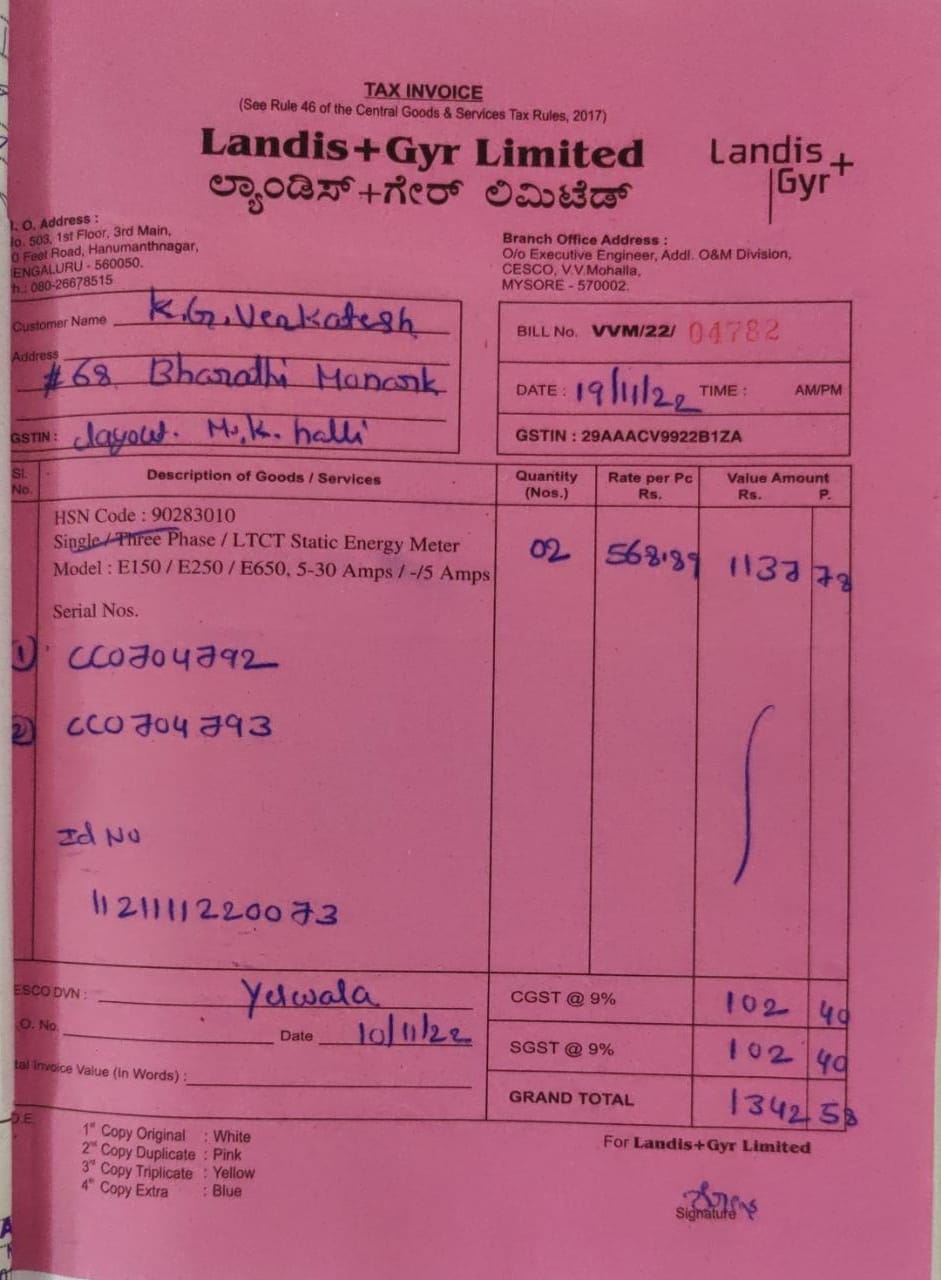 TAX INVOICE
(See Rule 46 of the Central Goods & Services Tax Rules, 2017)
Landis+Gyr Limited
ಲ್ಯಾಂಡಿಸ್+ಗೇರ್ ಲಿಮಿಟೆಡ್
Landis
Gyr+
. O. Address :
o. 503, 1st Floor, 3rd Main,
0 Feet Road, Hanumanthnagar,
ENGALURU - 560050.
h.: 080-26678515
Branch Office Address :
O/o Executive Engineer, Addl. O&M Division,
CESCO, V.V.Mohalla,
MYSORE - 570002.
Customer Name K.G. Venkatesh
Address
#68 Bharathi
GSTIN : layout. halli
BILL No. VVM/22/ 04782
DATE : 19/11/22 TIME : AM/PM
GSTIN : 29AAACV9922B1ZA
Sl. No. Description of Goods / Services Quantity (Nos.) Rate per Pc Rs. Value Amount Rs. P.
HSN Code : 90283010
Single / Three Phase / LTCT Static Energy Meter 02 568.89 1137 78
Model : E150 / E250 / E650, 5-30 Amps / -/5 Amps
Serial Nos.
1) CC0704792
2) CC0704793
Id No
1121111220073
ESCO DVN : Yelwala
.O. No. Date 10/11/22
tal Invoice Value (In Words) :
CGST @ 9% 102 40
SGST @ 9% 102 40
GRAND TOTAL 1342 58
.E.
1st Copy Original : White
2nd Copy Duplicate : Pink
3rd Copy Triplicate : Yellow
4th Copy Extra : Blue
For Landis+Gyr Limited
Signature